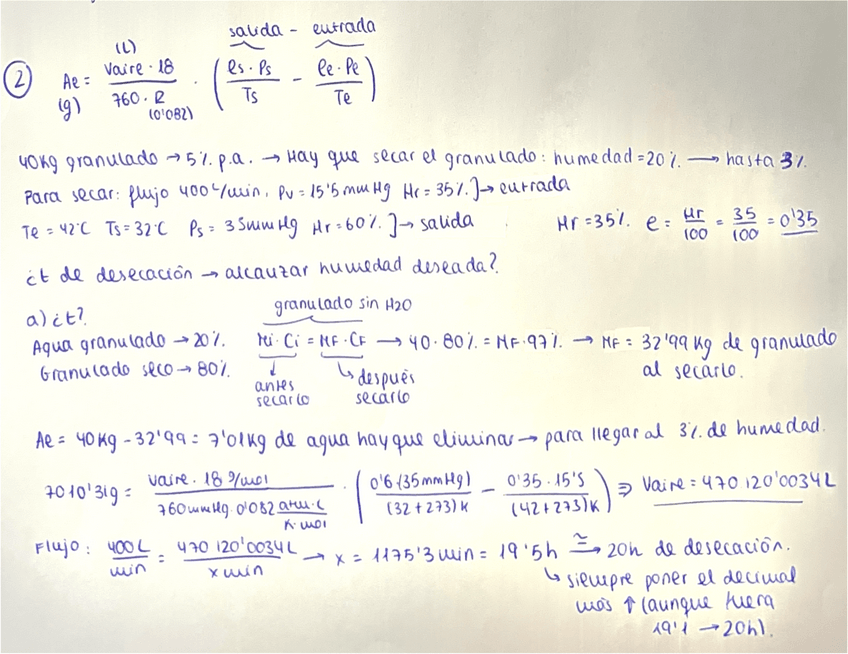 salida - entrada
② Ae (g) = (L) Vaire · 18 / 760 · R (0'082) · (es · Ps / Ts − ee · Pe / Te)
40Kg granulado → 5% p.a. → Hay que secar el granulado: humedad = 20% → hasta 3%
Para secar: flujo 400 L/min, Pv = 15'5 mmHg Hr = 35% ] → entrada
Te = 42°C Ts = 32°C Ps = 35mmHg Hr = 60% ] → salida . Hr = 35% e = Hr/100 = 35/100 = 0'35
¿t de desecación → alcanzar humedad deseada?
granulado sin H2O
a) ¿t?
Agua granulado → 20% Mi · Ci = MF · CF → 40 · 80% = MF · 97% → MF = 32'99 Kg de granulado
Granulado seco → 80% al secarlo.
antes secarlo
después secarlo
Ae = 40Kg − 32'99 = 7'01Kg de agua hay que eliminar → para llegar al 3% de humedad.
7010'31g = Vaire · 18 g/mol / 760mmHg · 0'082 atm·L/K·mol · (0'6 (35mmHg) / (32+273)K − 0'35 · 15'5 / (42+273)K) ⇒ Vaire = 470 120'0034L
Flujo: 400L/min = 470 120'0034L / x min → x = 1175'3 min = 19'5h ≅→ 20h de desecación.
↳ siempre poner el decimal
más ↑ (aunque fuera
19'1 → 20h).